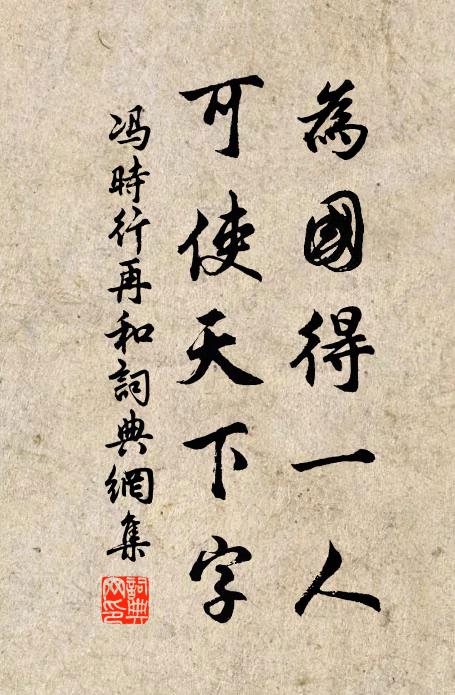 為國得一人
可使天下字
冯時行再和詞典網集
詞典
网印